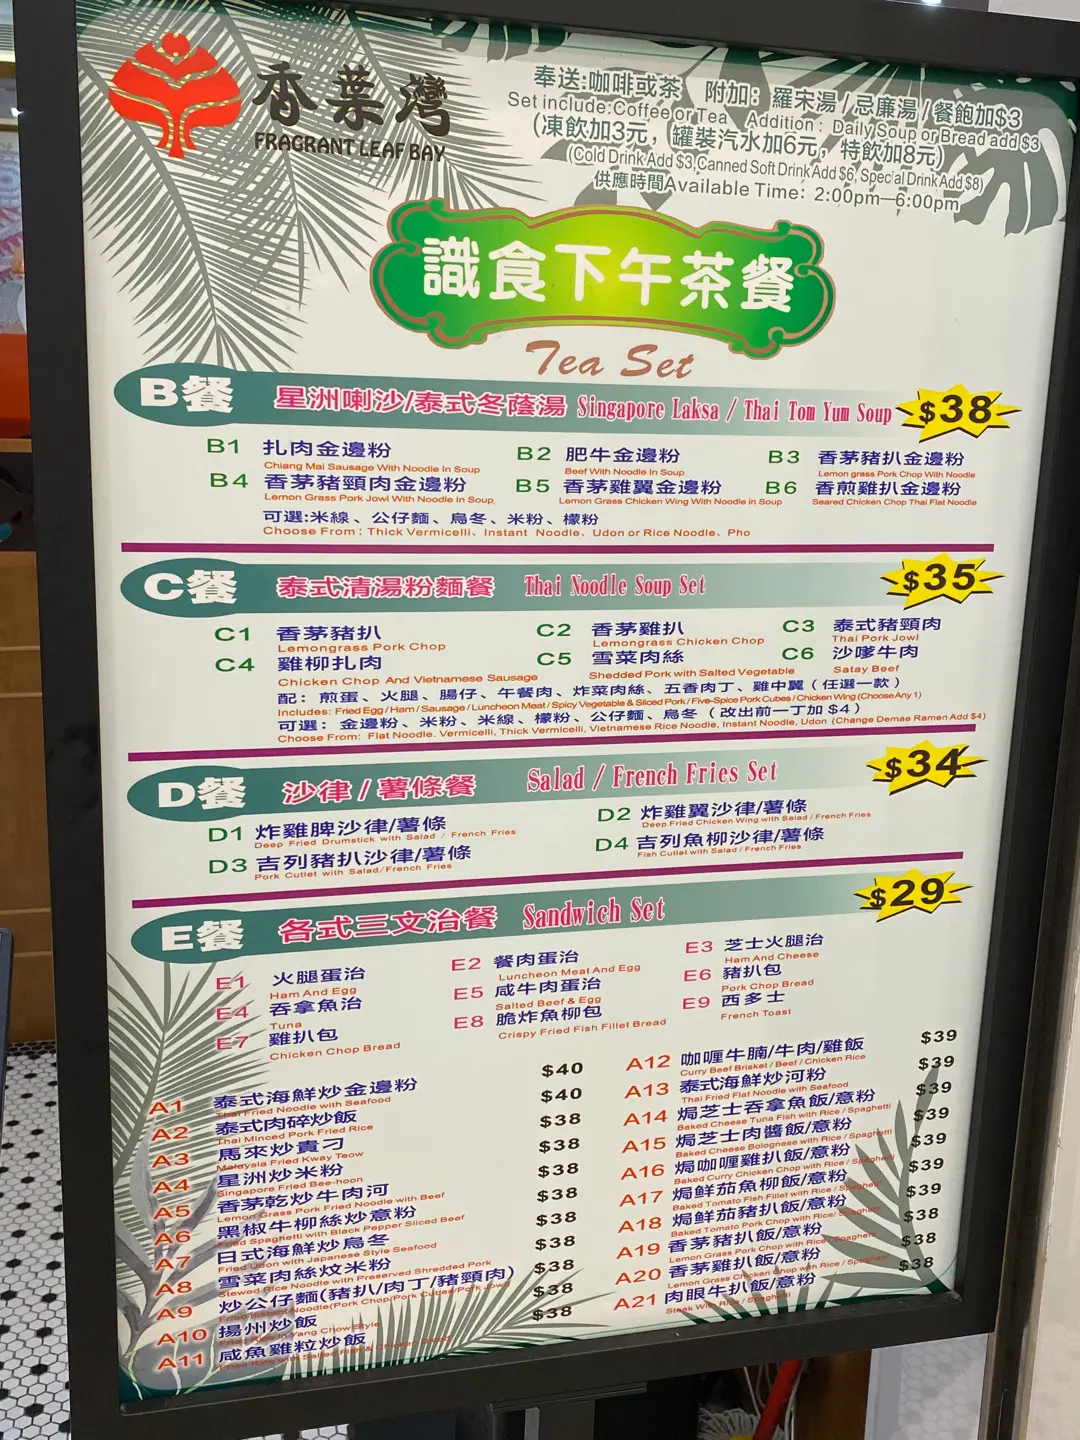 香葉灣
FRAGRANT LEAF BAY
奉送:咖啡或茶 附加：羅宋湯/忌廉湯/餐飽加$3
Set include:Coffee or Tea Addition：Daily Soup or Bread add $3
(凍飲加3元，(罐裝汽水加6元，特飲加8元)
(Cold Drink Add $3,Canned Soft Drink Add $6, Special Drink Add $8)
供應時間Available Time：2:00pm—6:00pm
識食下午茶餐
Tea Set
B餐 星洲喇沙/泰式冬蔭湯 Singapore Laksa / Thai Tom Yum Soup $38
B1 扎肉金邊粉 B2 肥牛金邊粉 B3 香茅豬扒金邊粉
Chiang Mai Sausage With Noodle In Soup Beef With Noodle In Soup Lemon grass Pork Chop With Noodle
B4 香茅豬頸肉金邊粉 B5 香茅雞翼金邊粉 B6 香煎雞扒金邊粉
Lemon Grass Pork Jowl With Noodle In Soup Lemon Grass Chicken Wing With Noodle in Soup Seared Chicken Chop Thai Flat Noodle
可選:米線、公仔麵、烏冬、米粉、檬粉
Choose From：Thick Vermicelli、Instant Noodle、Udon or Rice Noodle、Pho
C餐 泰式清湯粉麵餐 Thai Noodle Soup Set $35
C1 香茅豬扒 C2 香茅雞扒 C3 泰式豬頸肉
Lemongrass Pork Chop Lemongrass Chicken Chop Thai Pork Jowl
C4 雞柳扎肉 C5 雪菜肉絲 C6 沙嗲牛肉
Chicken Chop And Vietnamese Sausage Shedded Pork with Salted Vegetable Satay Beef
配：煎蛋、火腿、腸仔、午餐肉、炸菜肉絲、五香肉丁、雞中翼（任選一款）
Includes: Fried Egg / Ham / Sausage / Luncheon Meat / Spicy Vegetable & Sliced Pork / Five-Spice Pork Cubes / Chicken Wing (Choose Any 1)
可選：金邊粉、米粉、米線、檬粉、公仔麵、烏冬（改出前一丁加 $4）
Choose From: Flat Noodle. Vermicelli, Thick Vermicelli, Vietnamese Rice Noodle, Instant Noodle, Udon (Change Demae Ramen Add $4)
D餐 沙律/薯條餐 Salad / French Fries Set $34
D1 炸雞脾沙律/薯條 D2 炸雞翼沙律/薯條
Deep Fried Drumstick with Salad / French Fries Deep Fried Chicken Wing with Salad / French Fries
D3 吉列豬扒沙律/薯條 D4 吉列魚柳沙律/薯條
Pork Cutlet with Salad/French Fries Fish Cutlet with Salad / French Fries
E餐 各式三文治餐 Sandwich Set $29
E1 火腿蛋治 E2 餐肉蛋治 E3 芝士火腿治
Ham And Egg Luncheon Meat And Egg Ham And Cheese
E4 吞拿魚治 E5 咸牛肉蛋治 E6 豬扒包
Tuna Salted Beef & Egg Pork Chop Bread
E7 雞扒包 E8 脆炸魚柳包 E9 西多士
Chicken Chop Bread Crispy Fried Fish Fillet Bread French Toast
A1 泰式海鮮炒金邊粉 $40
Thai Fried Noodle with Seafood
A2 泰式肉碎炒飯 $40
Thai Minced Pork Fried Rice
A3 馬來炒貴刁 $38
Malaysia Fried Kway Teow
A4 星洲炒米粉 $38
Singapore Fried Bee-hoon
A5 香茅乾炒牛肉河 $38
Lemon Grass Pork Fried Noodle with Beef
A6 黑椒牛柳絲炒意粉 $38
Fried Spaghetti with Black Pepper Sliced Beef
A7 日式海鮮炒烏冬 $38
Fried Udon with Japanese Style Seafood
A8 雪菜肉絲炆米粉 $38
Stewed Rice Noodle with Preserved Shredded Pork
A9 炒公仔麵(豬扒/肉丁/豬頸肉) $38
Fried Instant Noodle(Pork Chop/Pork Cubes/Pork Jowl)
A10 揚州炒飯 $38
Fried Rice in Yang Chow Style
A11 咸魚雞粒炒飯 $38
Fried Rice with Salted Fish & Chicken
A12 咖喱牛腩/牛肉/雞飯 $39
Curry Beef Brisket / Beef / Chicken Rice
A13 泰式海鮮炒河粉 $39
Thai Fried Flat Noodle with Seafood
A14 焗芝士吞拿魚飯/意粉 $39
Baked Cheese Tuna Fish with Rice / Spaghetti
A15 焗芝士肉醬飯/意粉 $39
Baked Cheese Bolognese with Rice / Spaghetti
A16 焗咖喱雞扒飯/意粉 $39
Baked Curry Chicken Chop with Rice / Spaghetti
A17 焗鮮茄魚柳飯/意粉 $39
Baked Tomato Fish Fillet with Rice / Spaghetti
A18 焗鮮茄豬扒飯/意粉 $39
Baked Tomato Pork Chop with Rice / Spaghetti
A19 香茅豬扒飯/意粉 $38
Lemon Grass Pork Chop with Rice / Spaghetti
A20 香茅雞扒飯/意粉 $38
Lemon Grass Chicken Chop with Rice / Spaghetti
A21 肉眼牛扒飯/意粉 $38
Steak With Rice / Spaghetti